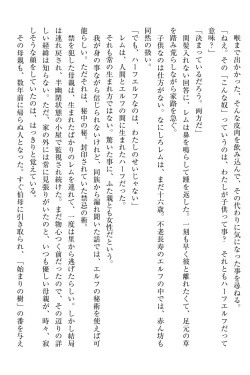 喉まで出かかった、そんな皮肉を飲み込んで、その代わりに気になった事を尋ねる。
「ねえ。その『こんな奴』っていうのは、わたしが子供って事? それともハーフエルフだって
意味?」
「決まっているだろう。両方だ」
間髪入れない回答に、レムは鼻を鳴らして踵を返した。一刻も早く彼と離れたくて、足元の草
を踏み荒らしながら家路を急ぐ。
子供なのは仕方がない。なにしろレムは、まだ十六歳。不老長寿のエルフの中では、赤ん坊も
同然の扱い。
「でも、ハーフエルフなのは、わたしのせいじゃない」
レムは、人間とエルフの間に生まれたハーフだった。
それも常の生まれ方ではない。驚いた事に、ふた親とも女性だという。
我が身の事ながら信じられないけれど、同族から漏れ聞いた話では、エルフの秘術を使えば可
能らしい。秘術の中の秘中の秘、封印されていた禁忌の術。
禁を犯した母親は、生まれたばかりのレムを連れて、一度は里から逃げたらしい。しかし結局
は連れ戻され、半幽閉状態の小屋で監視され続けた。まだ物心つく前だったので、その辺りの詳
しい経緯は知らない。ただ、家の外には常に見張りがいたのと、いつも優しい母親が、時々、寂
しそうな顔をしていたのは、はっきりと覚えている。
その母親も、数年前に帰らぬ人となった。すぐ祖母に引き取られ、「始まりの樹」の番を与え